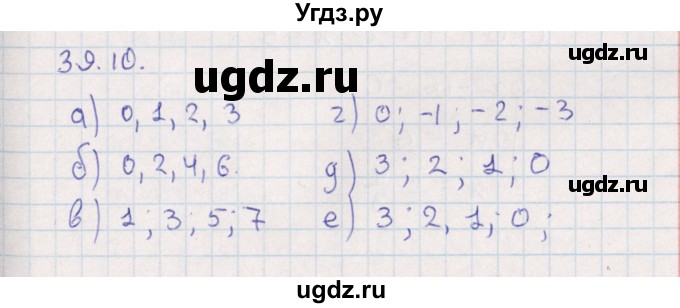 Угдз.ру
39.10.
ugdz.ru
а) 0, 1, 2, 3
г) 0; -1; -2; -3
б) 0, 2, 4, 6.
д) 3; 2; 1; 0
в) 1; 3; 5; 7
е) 3; 2, 1; 0;
ugdz.ru
ugdz.ru